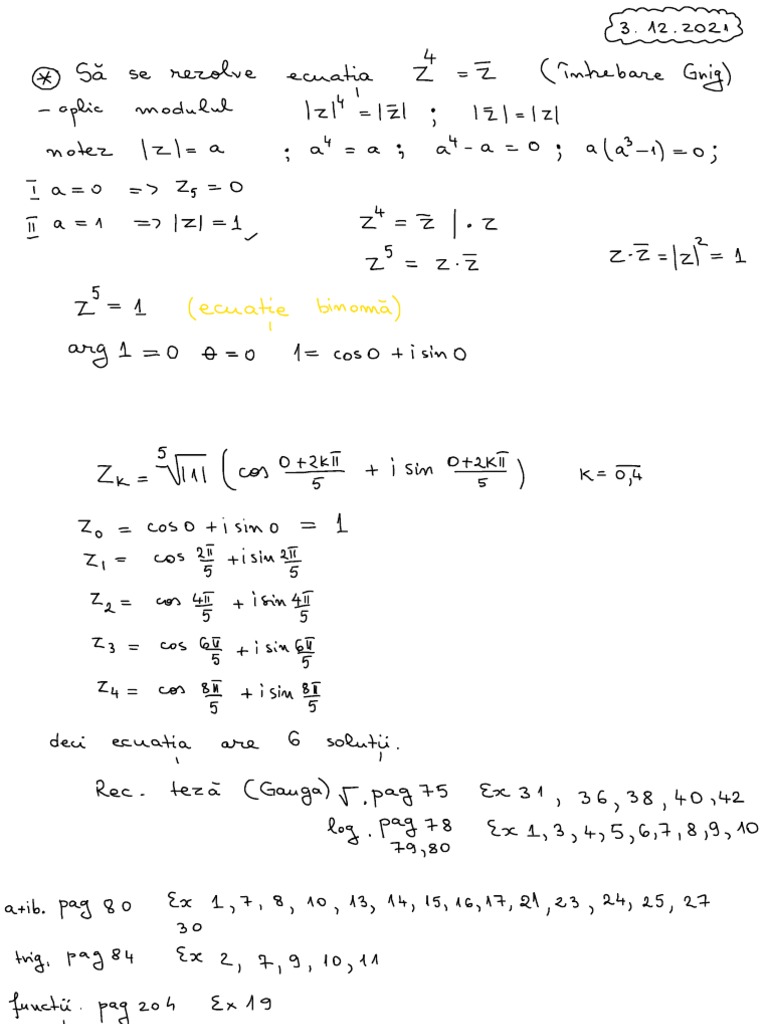 3.12.2021
* Să se rezolve ecuația z⁴ = z̄ (întrebare Gnig)
- aplic modulul |z|⁴ = |z̄| ; |z̄| = |z|
notez |z| = a ; a⁴ = a ; a⁴ - a = 0 ; a(a³-1) = 0 ;
I a = 0 => z₅ = 0
II a = 1 => |z| = 1 ✓ z⁴ = z̄ | · z
z⁵ = z · z̄ z · z̄ = |z|² = 1
z⁵ = 1 (ecuație binomă)
arg 1 = 0 θ = 0 1 = cos 0 + i sin 0
Z_K = ⁵√|1| (cos (0+2kπ)/5 + i sin (0+2kπ)/5) K = 0,4‾
z₀ = cos 0 + i sin 0 = 1
z₁ = cos 2π/5 + i sin 2π/5
z₂ = cos 4π/5 + i sin 4π/5
z₃ = cos 6π/5 + i sin 6π/5
z₄ = cos 8π/5 + i sin 8π/5
deci ecuația are 6 soluții.
Rec. teză (Gauga) √. pag 75 Ex 31, 36, 38, 40, 42
log. pag 78 Ex 1, 3, 4, 5, 6, 7, 8, 9, 10
79, 80
a+ib. pag 80 Ex 1, 7, 8, 10, 13, 14, 15, 16, 17, 21, 23, 24, 25, 27
30
trig. pag 84 Ex 2, 7, 9, 10, 11
funcții. pag 204 Ex 19